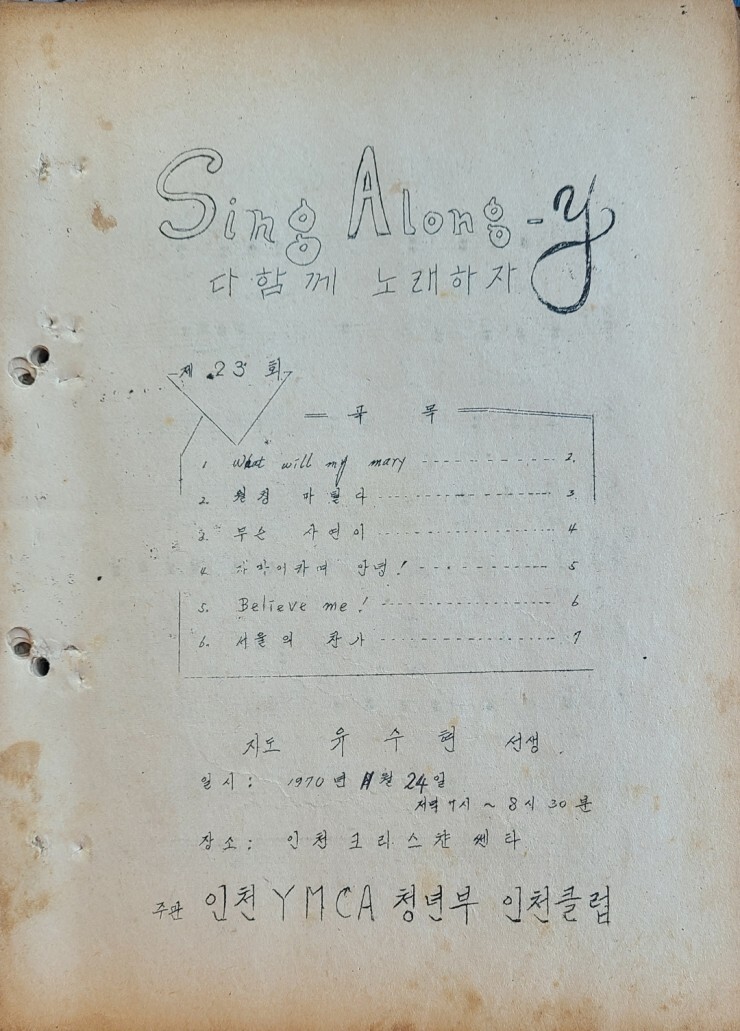 Sing Along-y
다함께 노래하자
제 23 회
곡 목
1 What will my mary 2.
2. 월칭 마틸다 3
3. 무슨 사연이 4
4. 안녕! 5
5. Believe me! 6
6. 서울의 찬가 7
지도 유수현 선생.
일시: 1970년 11월 24일
저녁 7시 ~ 8시 30분
장소: 인천크리스챤쎈타
주관 인천YMCA 청년부 인천클럽